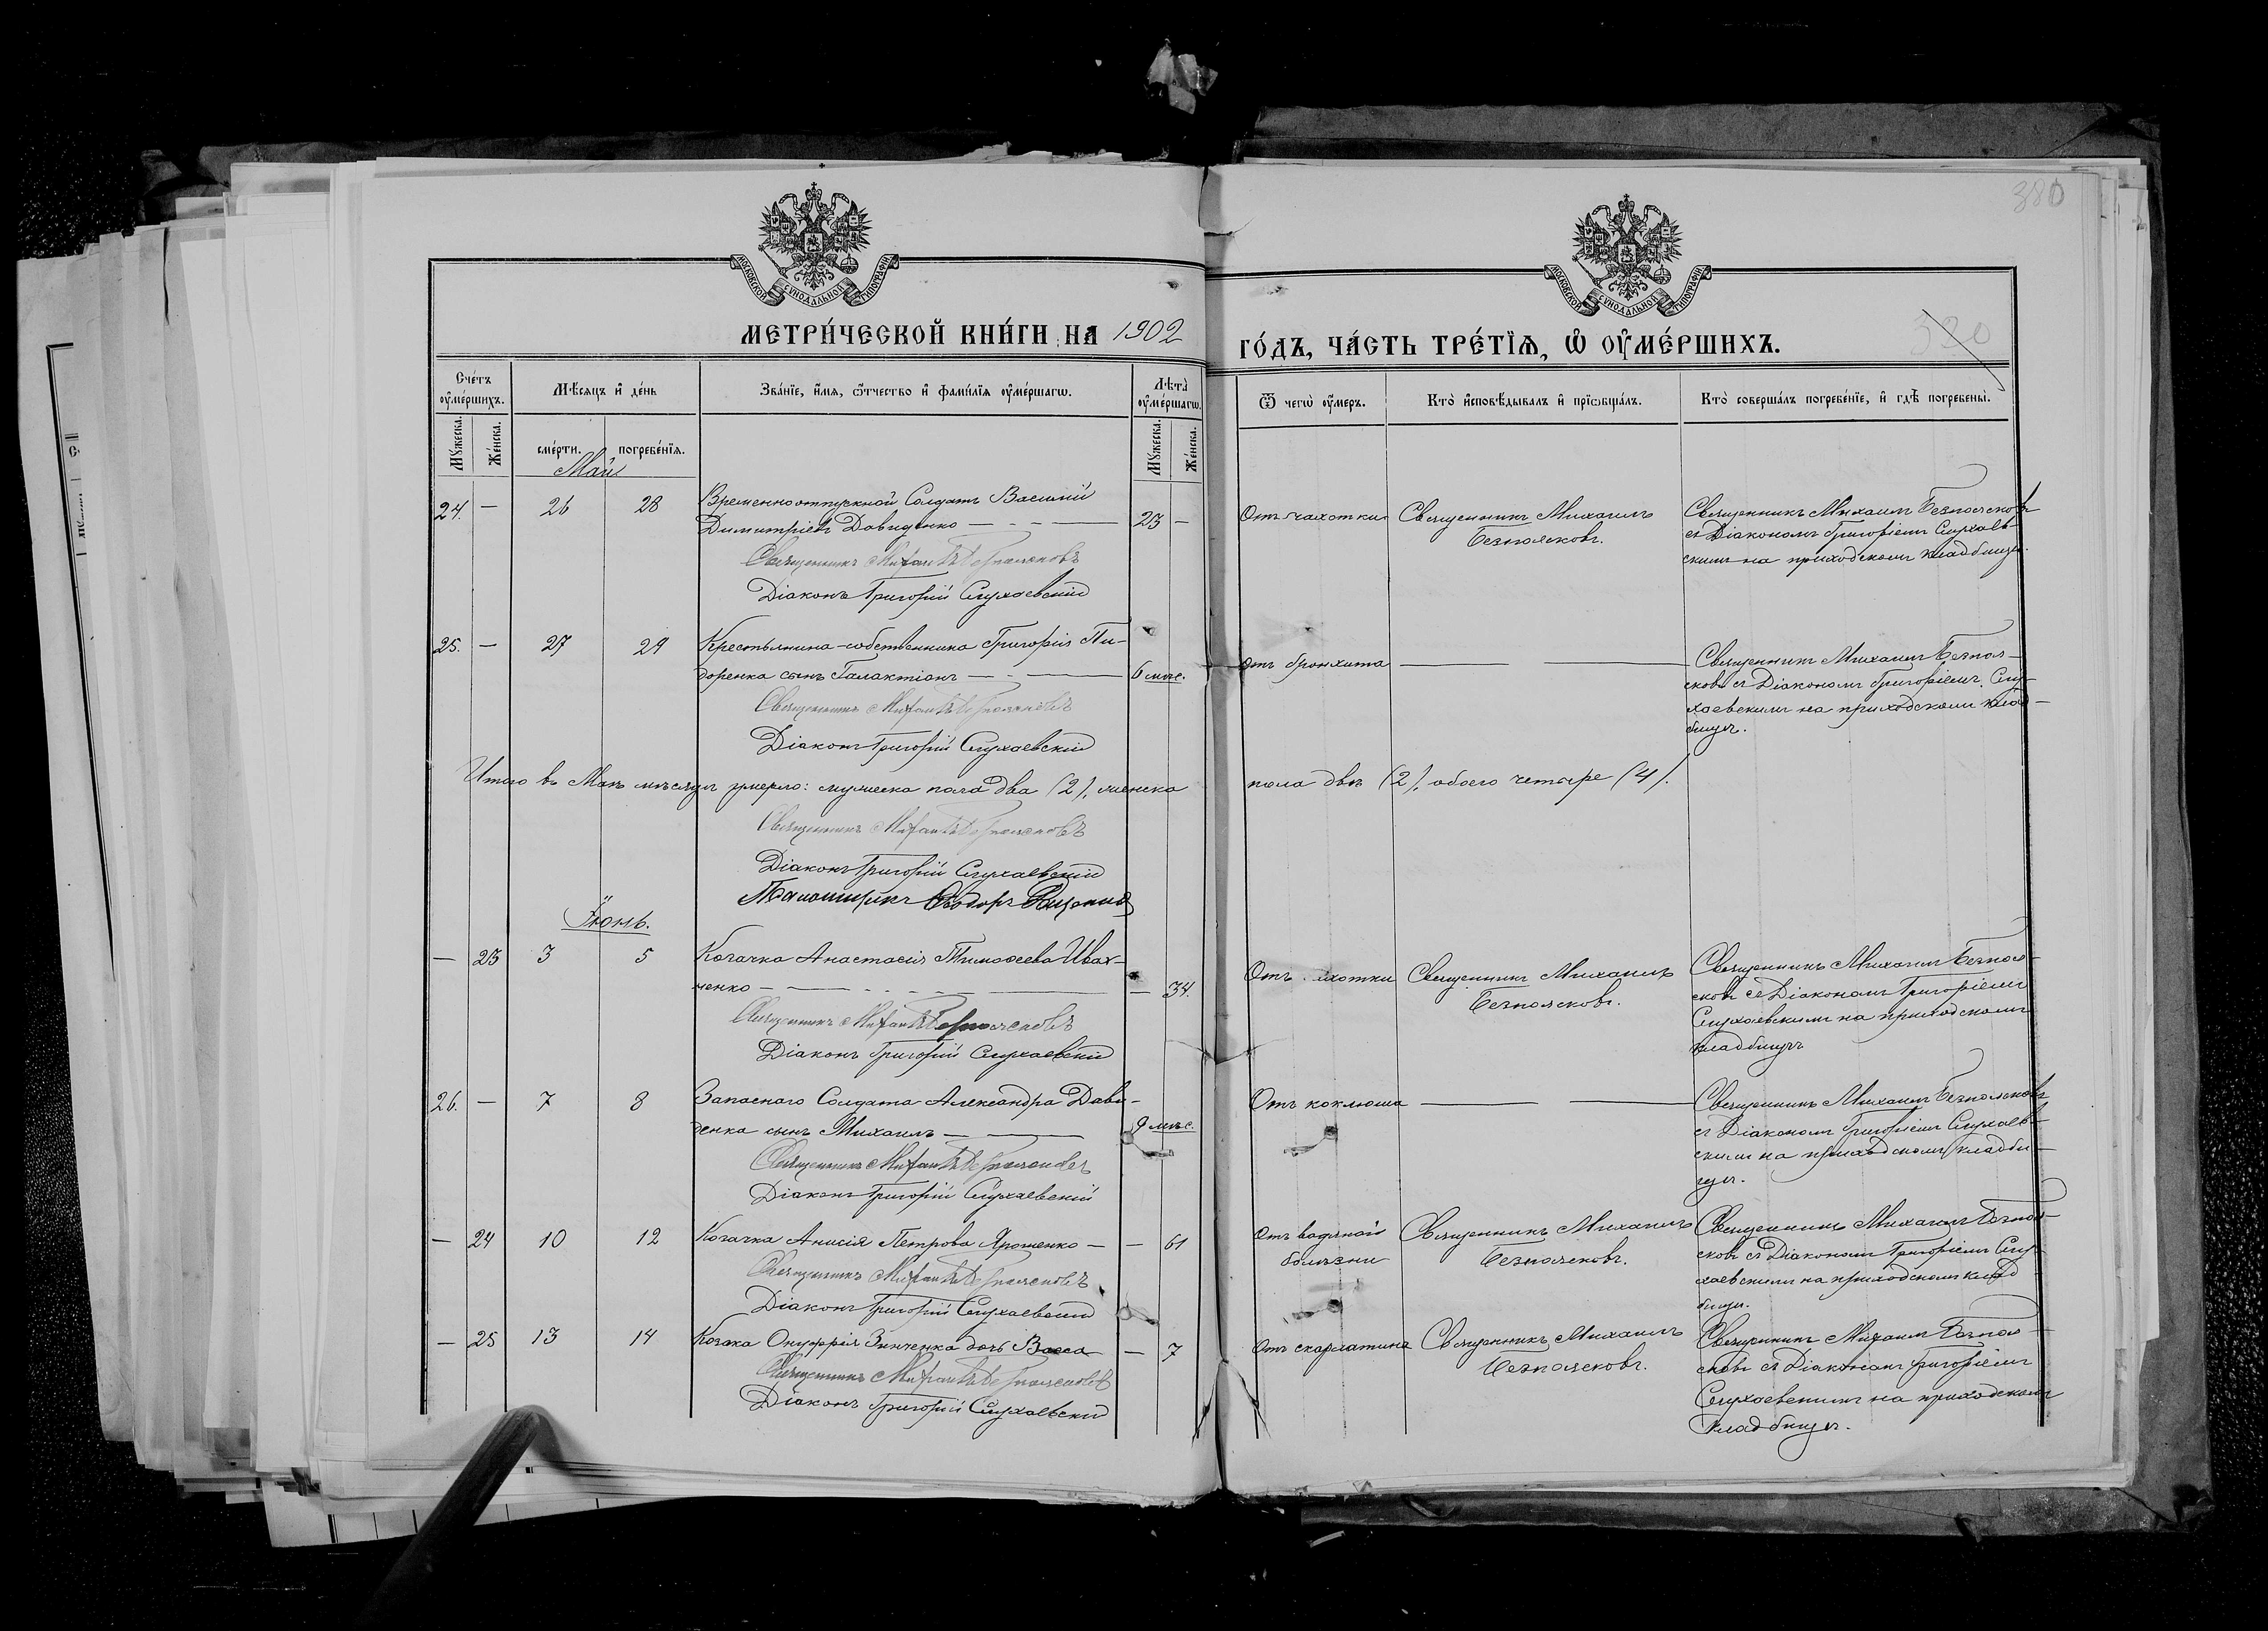 380
МОСКОВСКОЙ СУНОДАЛЬНОЙ ТИПОГРАФІИ
МОСКОВСКОЙ СУНОДАЛЬНОЙ ТИПОГРАФІИ
МЕТРИ́ЧЕСКОЙ КНИ́ГИ НА 1902
ГО́ДЪ, ЧА́СТЬ ТРЕ́ТЇѦ, Ѡ ОУМЕ́РШИХЪ.
Сче́тъ оуме́ршихъ.
Мꙋжеска.
Же́нска.
Мѣсяцъ и де́нь
сме́рти.
погребе́нїя.
Зва́нїе, и́мя, ѻ́тчество и фами́лїя оуме́ршагѡ.
Лѣта̀ оуме́ршагѡ.
Мꙋжеска.
Же́нска.
Ѿ чегѡ̀ оу́меръ.
Кто̀ и́сповѣдывалъ и прїѡбща́лъ.
Кто̀ соверша́лъ погребе́нїе, и гдѣ̀ погребены̀.
Май
24. — 26 28 Временноотпускной Солдатъ Василій
Димитріевъ Давиденко — 23 —
Священникъ Михаилъ Безпоясковъ
Діаконъ Григорій Слухаевскій
Отъ чахотки
Священникъ Михаилъ
Безпоясковъ.
Священникъ Михаилъ Безпоясковъ
съ Діакономъ Григоріемъ Слухаев-
скимъ на приходскомъ кладбищѣ.
25. — 27 29 Крестьянина-собственника Григорія Пи-
доренка сынъ Галактіонъ — 6 мѣс.
Священникъ Михаилъ Безпоясковъ
Діаконъ Григорій Слухаевскій
Отъ бронхита —
Священникъ Михаилъ Безпоя-
сковъ съ Діакономъ Григоріемъ Слу-
хаевскимъ на приходскомъ клад-
бищѣ.
Итого въ Маѣ мѣсяцѣ умерло: мужеска пола два (2), женска
пола двѣ (2), обоего четыре (4).
Священникъ Михаилъ Безпоясковъ
Діаконъ Григорій Слухаевскій
Псаломщикъ Ѳеодоръ
Іюнь.
— 23 3 5 Козачка Анастасія Тимоѳеева Ивах-
ненко — — 34.
Священникъ Михаилъ Безпоясковъ
Діаконъ Григорій Слухаевскій
Отъ чахотки
Священникъ Михаилъ
Безпоясковъ.
Священникъ Михаилъ Безпоя-
сковъ съ Діакономъ Григоріемъ
Слухаевскимъ на приходскомъ
кладбищѣ
26. — 7 8 Запаснаго Солдата Александра Дави-
денка сынъ Михаилъ — 9 мѣс.
Священникъ Михаилъ Безпоясковъ
Діаконъ Григорій Слухаевскій
Отъ коклюша —
Священникъ Михаилъ Безпоясковъ
съ Діакономъ Григоріемъ Слухаев-
скимъ на приходскомъ кладби-
щѣ.
— 24 10 12 Козачка Анисія Петрова Ярошенко — — 61
Священникъ Михаилъ Безпоясковъ
Діаконъ Григорій Слухаевскій
Отъ водяной
болѣзни
Священникъ Михаилъ
Безпоясковъ.
Священникъ Михаилъ Безпоя-
сковъ съ Діакономъ Григоріемъ Слу-
хаевскимъ на приходскомъ клад-
бищѣ.
— 25 13 14 Козака Онуфрія Зинченка дочь Васса — 7
Священникъ Михаилъ Безпоясковъ
Діаконъ Григорій Слухаевскій
Отъ скарлатины
Священникъ Михаилъ
Безпоясковъ.
Священникъ Михаилъ Безпоя-
сковъ съ Діакономъ Григоріемъ
Слухаевскимъ на приходскомъ
кладбищѣ.